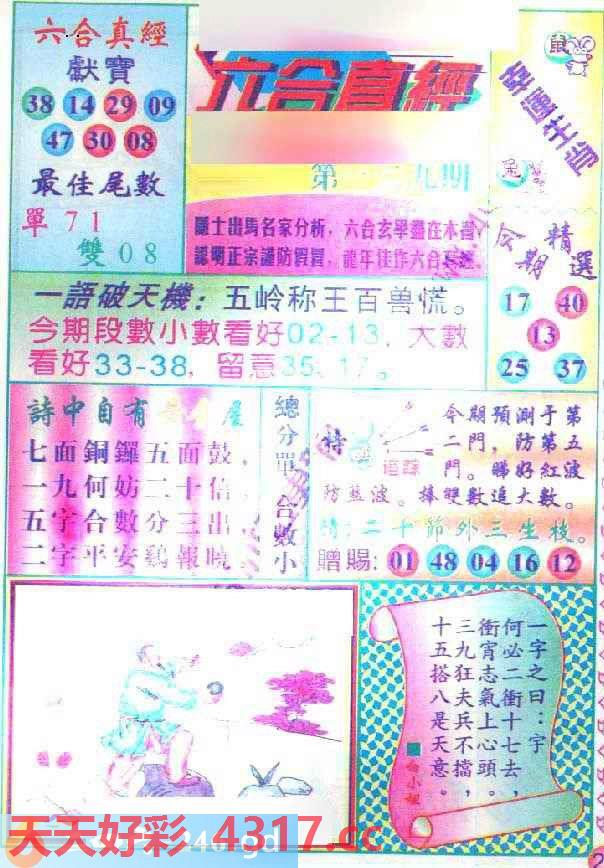 六合真經
獻寶
38 14 29 09
47 30 08
最佳尾數
單71
雙08
六合真經
九期
隱士出馬名家分析，六合玄學盡在本書
認明正宗謹防假冒，龍年佳作六合真經。
鼠
幸運生肖
兔
今期精選
17 40
13
25 37
一語破天機：五岭称王百兽慌。
今期段數小數看好02-13，大數
看好33-38，留意35、17。
詩中自有
七面銅鑼五面鼓，
一九何妨二十倍，
五字合數分三出，
二字平安鷄報曉。
總分單
合數小
特
追踪
今期預測于第
二門，防第五
門。睇好紅波
防藍波。捧雙數追大數。
詩：二十節外三生枝。
贈賜：01 48 04 16 12
一字之曰：字
何必二衝十七去，
衝宵志氣上心頭。
三九狂夫兵不擋，
十五搭八是天意。
天天好彩 4317.cc
246.gd